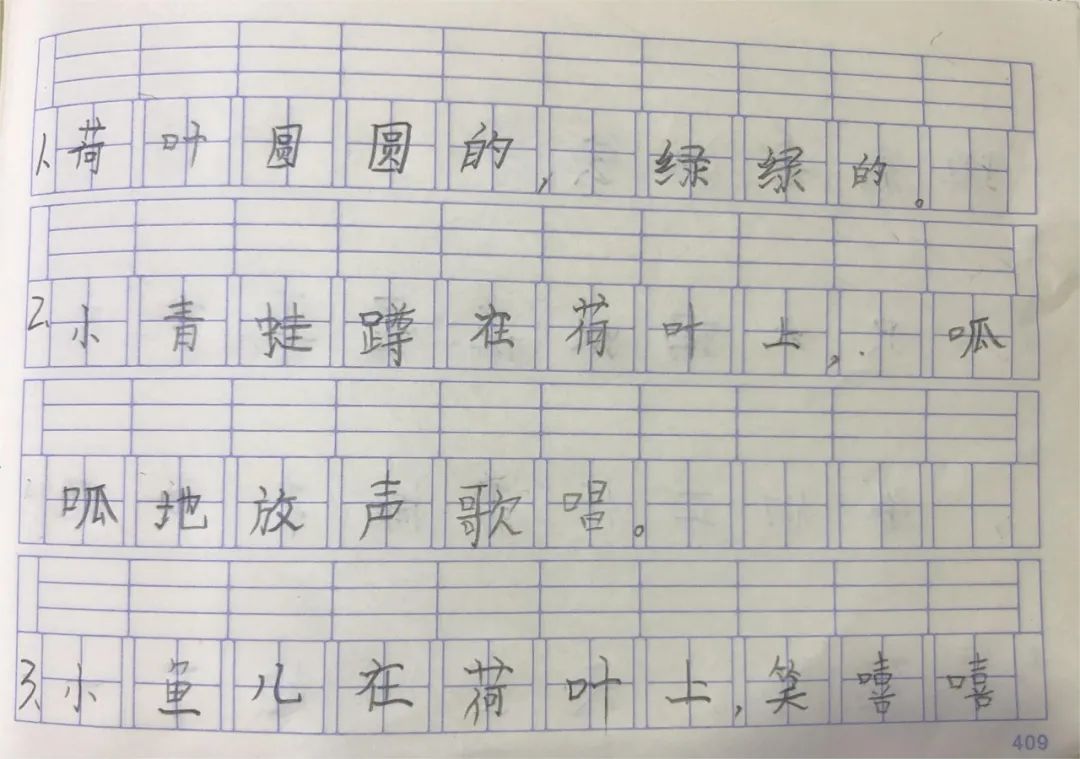 1、荷叶圆圆的，绿绿的。
2、小青蛙蹲在荷叶上，呱
呱地放声歌唱。
3、小鱼儿在荷叶上，笑嘻嘻
409